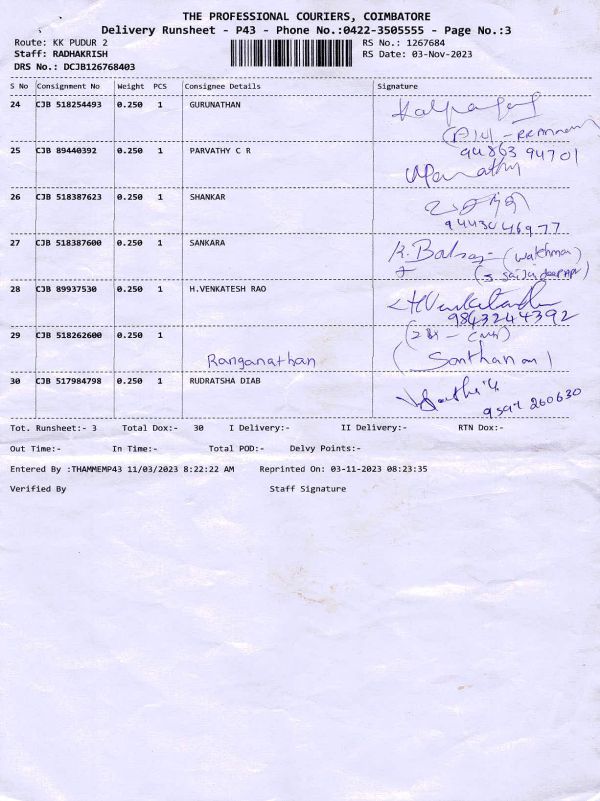 THE PROFESSIONAL COURIERS, COIMBATORE
Delivery Runsheet - P43 - Phone No.:0422-3505555 - Page No.:3
Route: KK PUDUR 2 RS No.: 1267684
Staff: RADHAKRISH RS Date: 03-Nov-2023
DRS No.: DCJB126768403
S No Consignment No Weight PCS Consignee Details Signature
24 CJB 518254493 0.250 1 GURUNATHAN
94863 94701
25 CJB 89440392 0.250 1 PARVATHY C R
26 CJB 518387623 0.250 1 SHANKAR
9443046977
27 CJB 518387600 0.250 1 SANKARA K. (watchman)
28 CJB 89937530 0.250 1 H.VENKATESH RAO
9843244392
29 CJB 518262600 0.250 1
Ranganathan
30 CJB 517984798 0.250 1 RUDRATSHA DIAB
260630
Tot. Runsheet:- 3 Total Dox:- 30 I Delivery:- II Delivery:- RTN Dox:-
Out Time:- In Time:- Total POD:- Delvy Points:-
Entered By :THAMMEMP43 11/03/2023 8:22:22 AM Reprinted On: 03-11-2023 08:23:35
Verified By Staff Signature